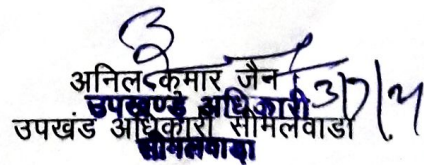 अनिल कुमार जैन
उपखण्ड अधिकारी
उपखंड अधिकारी सीमलवाडा
सीमलवाडा